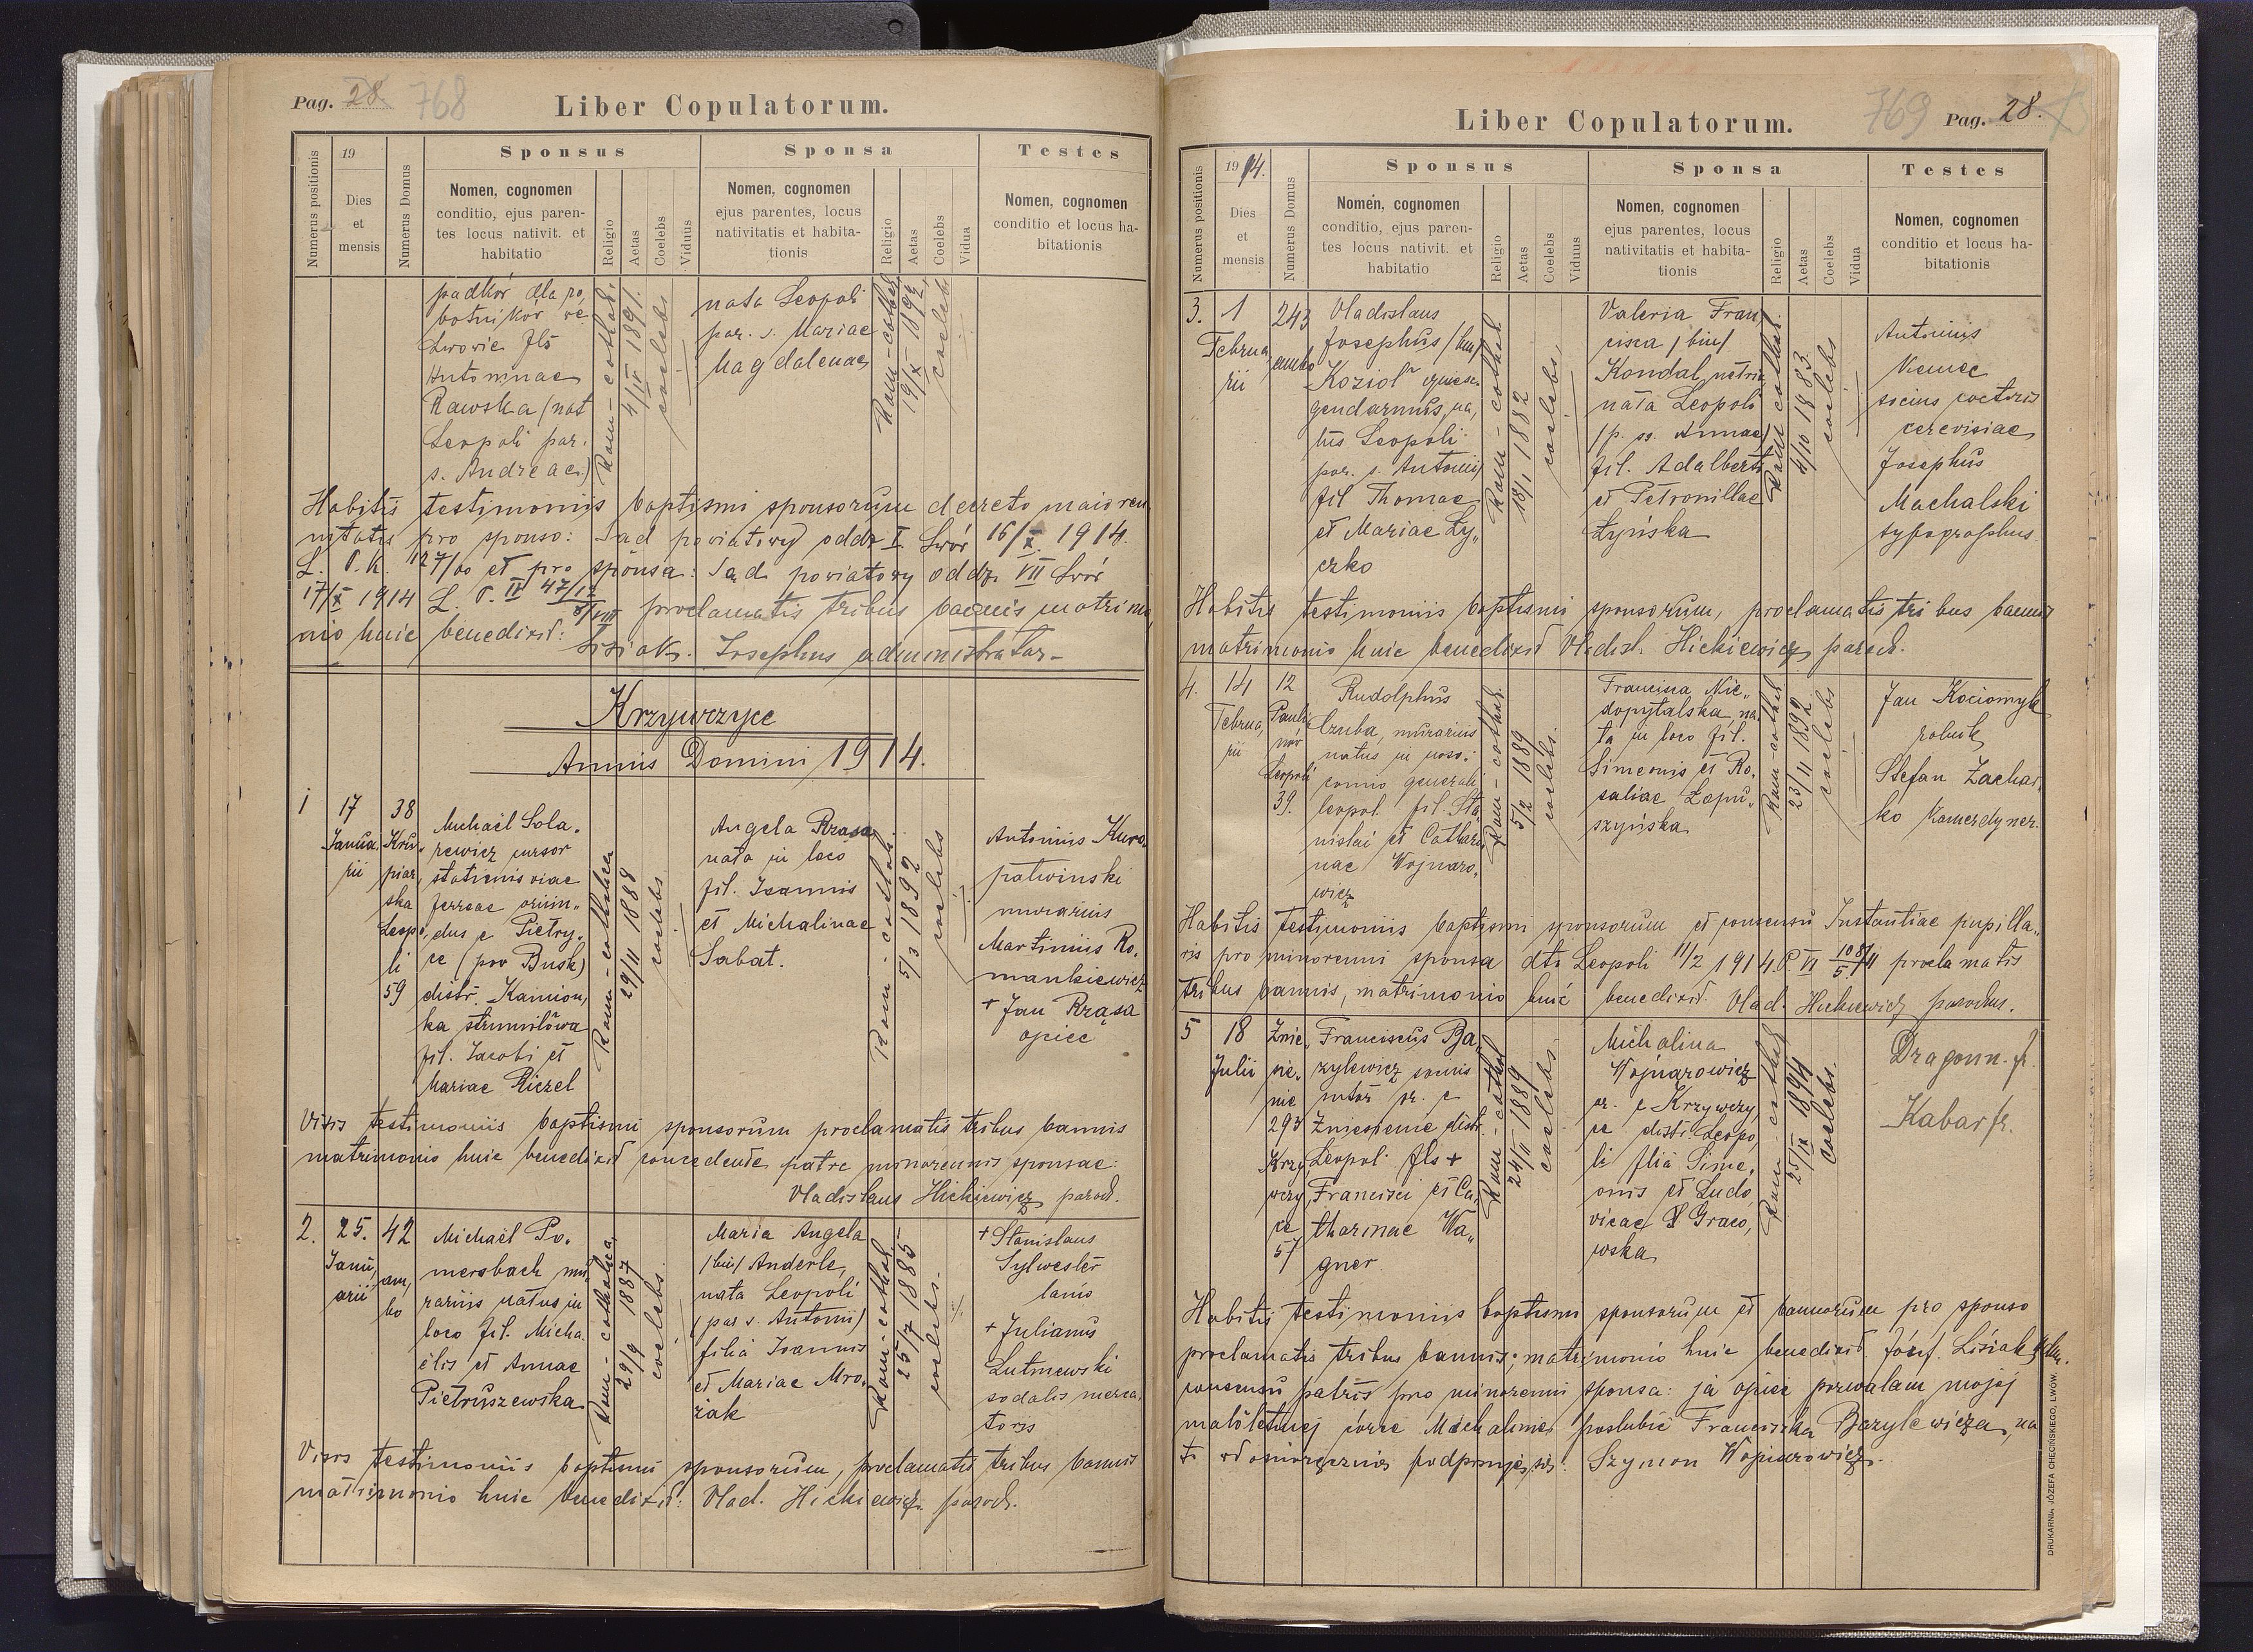 Pag. 28. 768
Liber Copulatorum.
Numerus positionis
19
Dies
et
mensis
Numerus Domus
Sponsus
Nomen, cognomen
conditio, ejus paren-
tes locus nativit. et
habitatio
Religio
Aetas
Coelebs
Viduus
Sponsa
Nomen, cognomen
ejus parentes, locus
nativitatis et habita-
tionis
Religio
Aetas
Coelebs
Vidua
Testes
Nomen, cognomen
conditio et locus ha-
bitationis
dla ro,
botników we
Lwowie fls
Antoninae
Rawska (nat
Leopoli par.
s. Andreae.)
Rom-cathol.
4/IV 1891.
coelebs
nata Leopoli
par. s. Mariae
Magdalenae
Rom-cathol
19/X 1892
coelebs
Habitis testimoniis baptismi sponsorum decreto maioren,
nitatis pro sponso: Sąd powiatowy oddz I. Lwów 16/X. 1914.
L. P. K. 127/00 et pro sponsa: Sąd powiatowy oddz VII Lwów
17/X 1914 L. P. II 47/12 8/VIII proclamatis tribus bannis matrimo,
nio huic benedixit: Lisiak. Josephus administrator-
Krzywczyce
Annus Domini 1914.
1
17
Janua,
rii
38
Kru,
piar,
ska
Leopo,
li
59
Michaël Sola.
rewicz cursor
stationis viae
ferreae oriun,,
dus e Pietry,
ce (pow Busk)
distr. Kamion,
ka strumiłowa
fil. Jacobi et
Mariae Riczel
Rom-catholica
29/11 1888
coelebs
Angela Rząsa
nata in loco
fil. Joannis
et Michalinae
Sabat.
Rom-cathol.
5/3 1892
coelebs
Antonius Kuro.
patwinski
murarius
Martinus Ro.
mankiewicz
+ Jan Rząsa
opiec
Visis testimoniis baptismi sponsorum proclamatis tribus bannis
matrimonio huic benedixit concedente patre minorennis sponsae:
Vladislaus Hickiewicz paroch.
2.
25.
Janu,
arii
42
am,
bo
Michaël Po.
mersbach mu,
rarius natus in
loco fil. Micha.
ëlis et Annae
Pietruszewska
Rom-catholica,
29/9 1887
coelebs.
Maria Angela
/bin/ Anderle,
nata Leopoli
(par s. Antonii)
filia Joannis
et Mariae Mro.
żak
Rom-cathol.
25/7 1885
coelebs.
+ Stanislaus
Sylwester
lanio
+ Julianus
Lutniewski
sodalis merca,
toris
Visis testimoniis baptismi sponsorum, proclamatis tribus bannis
matrimonio huic benedixit: Vlad. Hickiewicz paroch.
Liber Copulatorum.
769 Pag. 28.
Numerus positionis
1914.
Dies
et
mensis
Numerus Domus
Sponsus
Nomen, cognomen
conditio, ejus paren-
tes locus nativit. et
habitatio
Religio
Aetas
Coelebs
Viduus
Sponsa
Nomen, cognomen
ejus parentes, locus
nativitatis et habita-
tionis
Religio
Aetas
Coelebs
Vidua
Testes
Nomen, cognomen
conditio et locus ha-
bitationis
3.
1
Februa,
rii
243
ambo
Vladislaus
Josephus /bin/
Kozioł
gendarmus, na,
tus Leopoli
par. s. Antonii
fil Thomae
et Mariae Ły,,
czko
Rom-cathol
18/1 1882
coelebs,
Valeria Fran
cisca /bin/
Kondal,
nata Leopoli
(p. ss. Annae)
fil. Adalberti
et Petronillae
Łyńska
Rom cathol.
4/10 1883.
coelebs
Antonius
Niemec
socius coctoris
cerevisiae
Josephus
Machalski
typographus.
Habitis testimoniis baptismi sponsorum, proclamatis tribus bannis
matrimonio huic benedixit Vladisl. Hickiewicz paroch.
4.
14
Februa,
rii
12
Pauli
nów
Leopoli
39.
Rudolphus
Czuba, murarius
natus in noso.
comio generali
leopol. fil. Sta,
nislai et Cathari
nae Wojnaro,
wicz
Rom-cathol.
5/2 1889
coelebs.
Francisca Nie,,
dopytalska, na,
ta in loco fil.
Simeonis et Ro.
saliae Łopu,,
szyńska
Rom-cathol
23/11 1892
coelebs
Jan Kociomyk
robotk
Stefan Zachar,
ko Kamerdyner.
Habitis testimoniis baptismi sponsorum et consensu Instantiae pupilla,,
ris pro minorenni sponsa dto Leopoli 11/2 1914. P. VI 108/11 5. proclamatis
tribus bannis, matrimonio huic benedixit Vlad. Hickiewicz parochus.
5
18
Julii
Znie,
sie,
nie
293
Krzy
wczy,
ce
57
Franciscus Ba,
zylewicz
or. e
Zniesienie distr.
Leopol. fls +
Francisci et Ca,
tharinae Wa,,
gner.
Rom-cathol
24/11 1889
coelebs.
Michalina
Wojnarowicz
or. e Krzywczy,
ce distr. Leopo,
li filia Sime,
onis et Ludo,
vicae Graco,
wska
Rom-cathol
25/IX 1894
coelebs.
Dragonn. fr.
Kabar fr.
Habitis testimoniis baptismi sponsorum et bannorum pro sponso
proclamatis tribus bannis: matrimonio huic benedixit. Józef. Lisiak
consensu patris pro minorenni sponsa: ja ojciec pozwalam mojej
małoletniej córce Michalinie poślubić Franciszka Bazylewicza, na
to własnoręcznie podpisuję się: Szymon Wojnarowicz.
DRUKARNIA JÓZEFA CHĘCIŃSKIEGO, LWÓW,